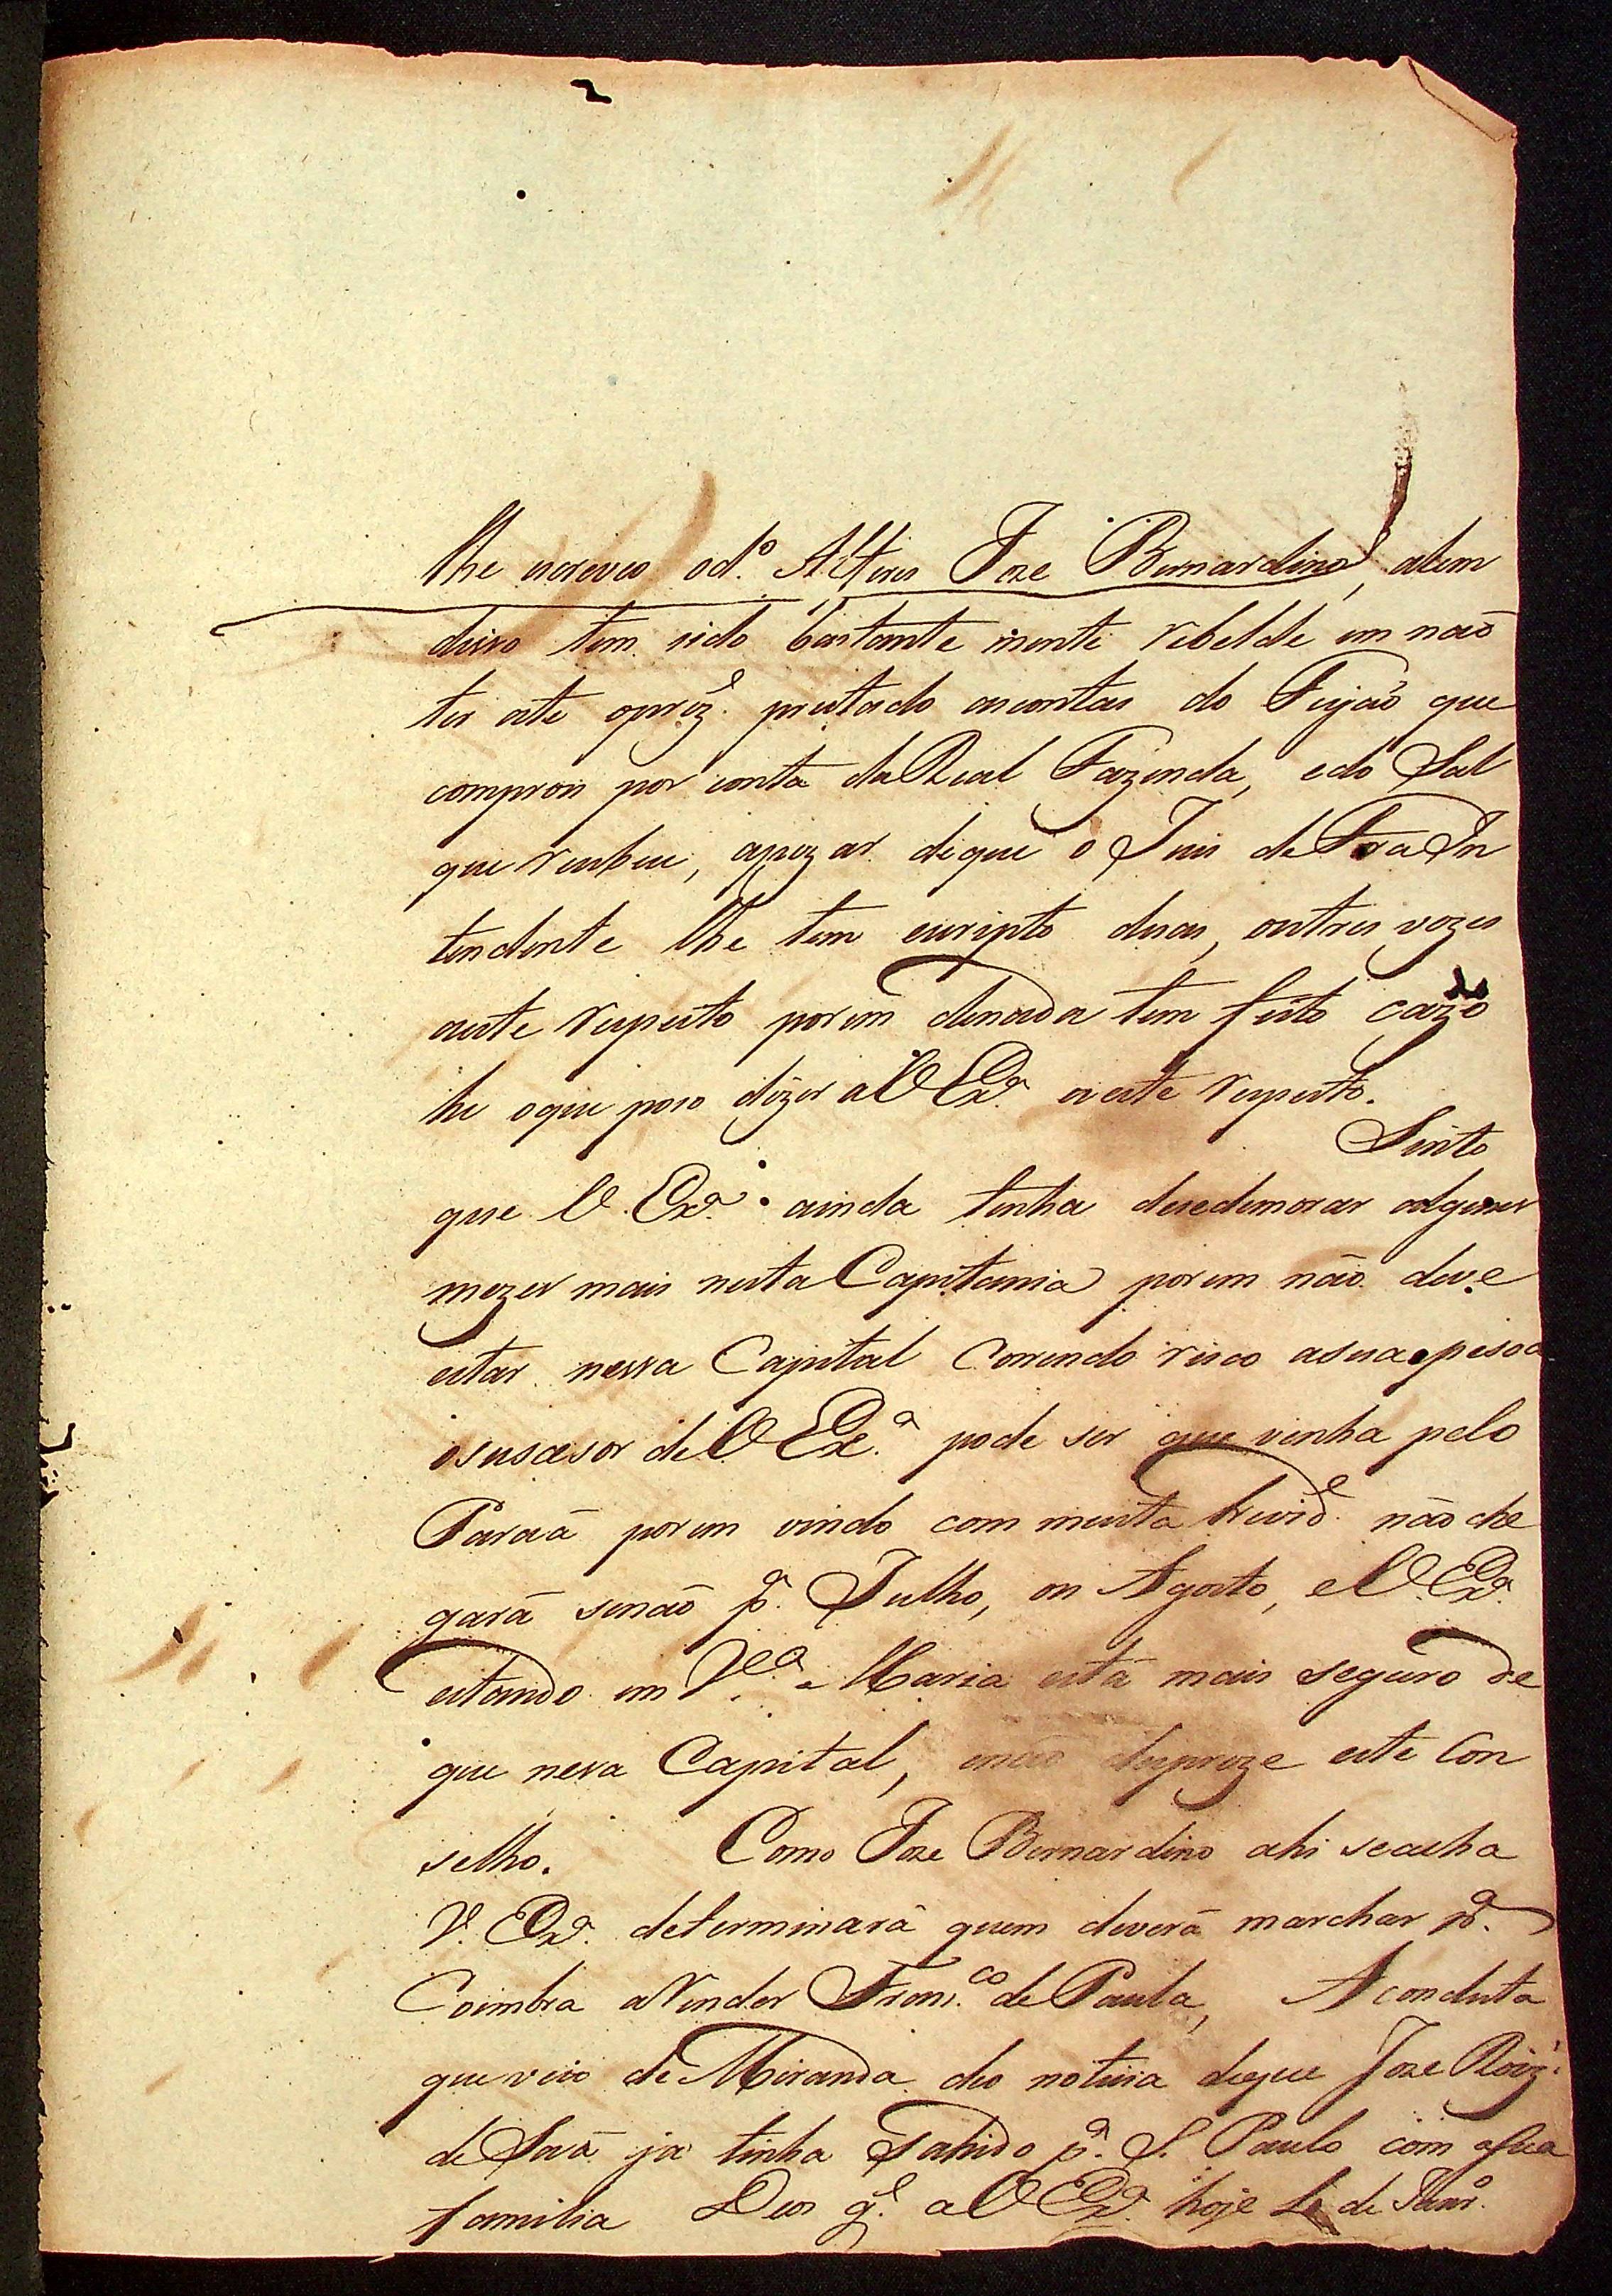 lhe escreveo od.º Alferes Joze Bernardino, alem
disso tem sido bastante mente rebelde em naõ
ter ate oprez.e prestado ascontas do Feijaõ que
comprou por conta daReal Fazenda, edo Sal
que recebeu, apezar deque o Juis deFora In
tendente lhe tem escripto duas, outres vezes
aeste respeito porem denada tem feito cazo
he oque poso dizer aVExª aeste respeito.
Sinto
que V.Exª ainda tenha desedemorar algunes
mezes mais nesta Capitania porem não deve
estar nessa Capital Correndo risco asua pesoa
osuscesor deVExª pode ser que venha pelo
Pará porem vindo com muita brevid.e não che
gará senaõ pª Julho, ou Agosto, eVExª
estando em Vª Maria está mais seguro de
que nesa Capital, enaõ despreze este Con
selho. Como Joze Bernardino ahi seacha
V.Exª determinará quem deverá marchar pª
Coimbra aRender Fran.co dePaula, A conduta
queveio de Miranda deo noticia deque Joze Roiz
de Sá já tinha Sahido pª S. Paulo com asua
familia Deos g.e aVExª hoje de Janrº